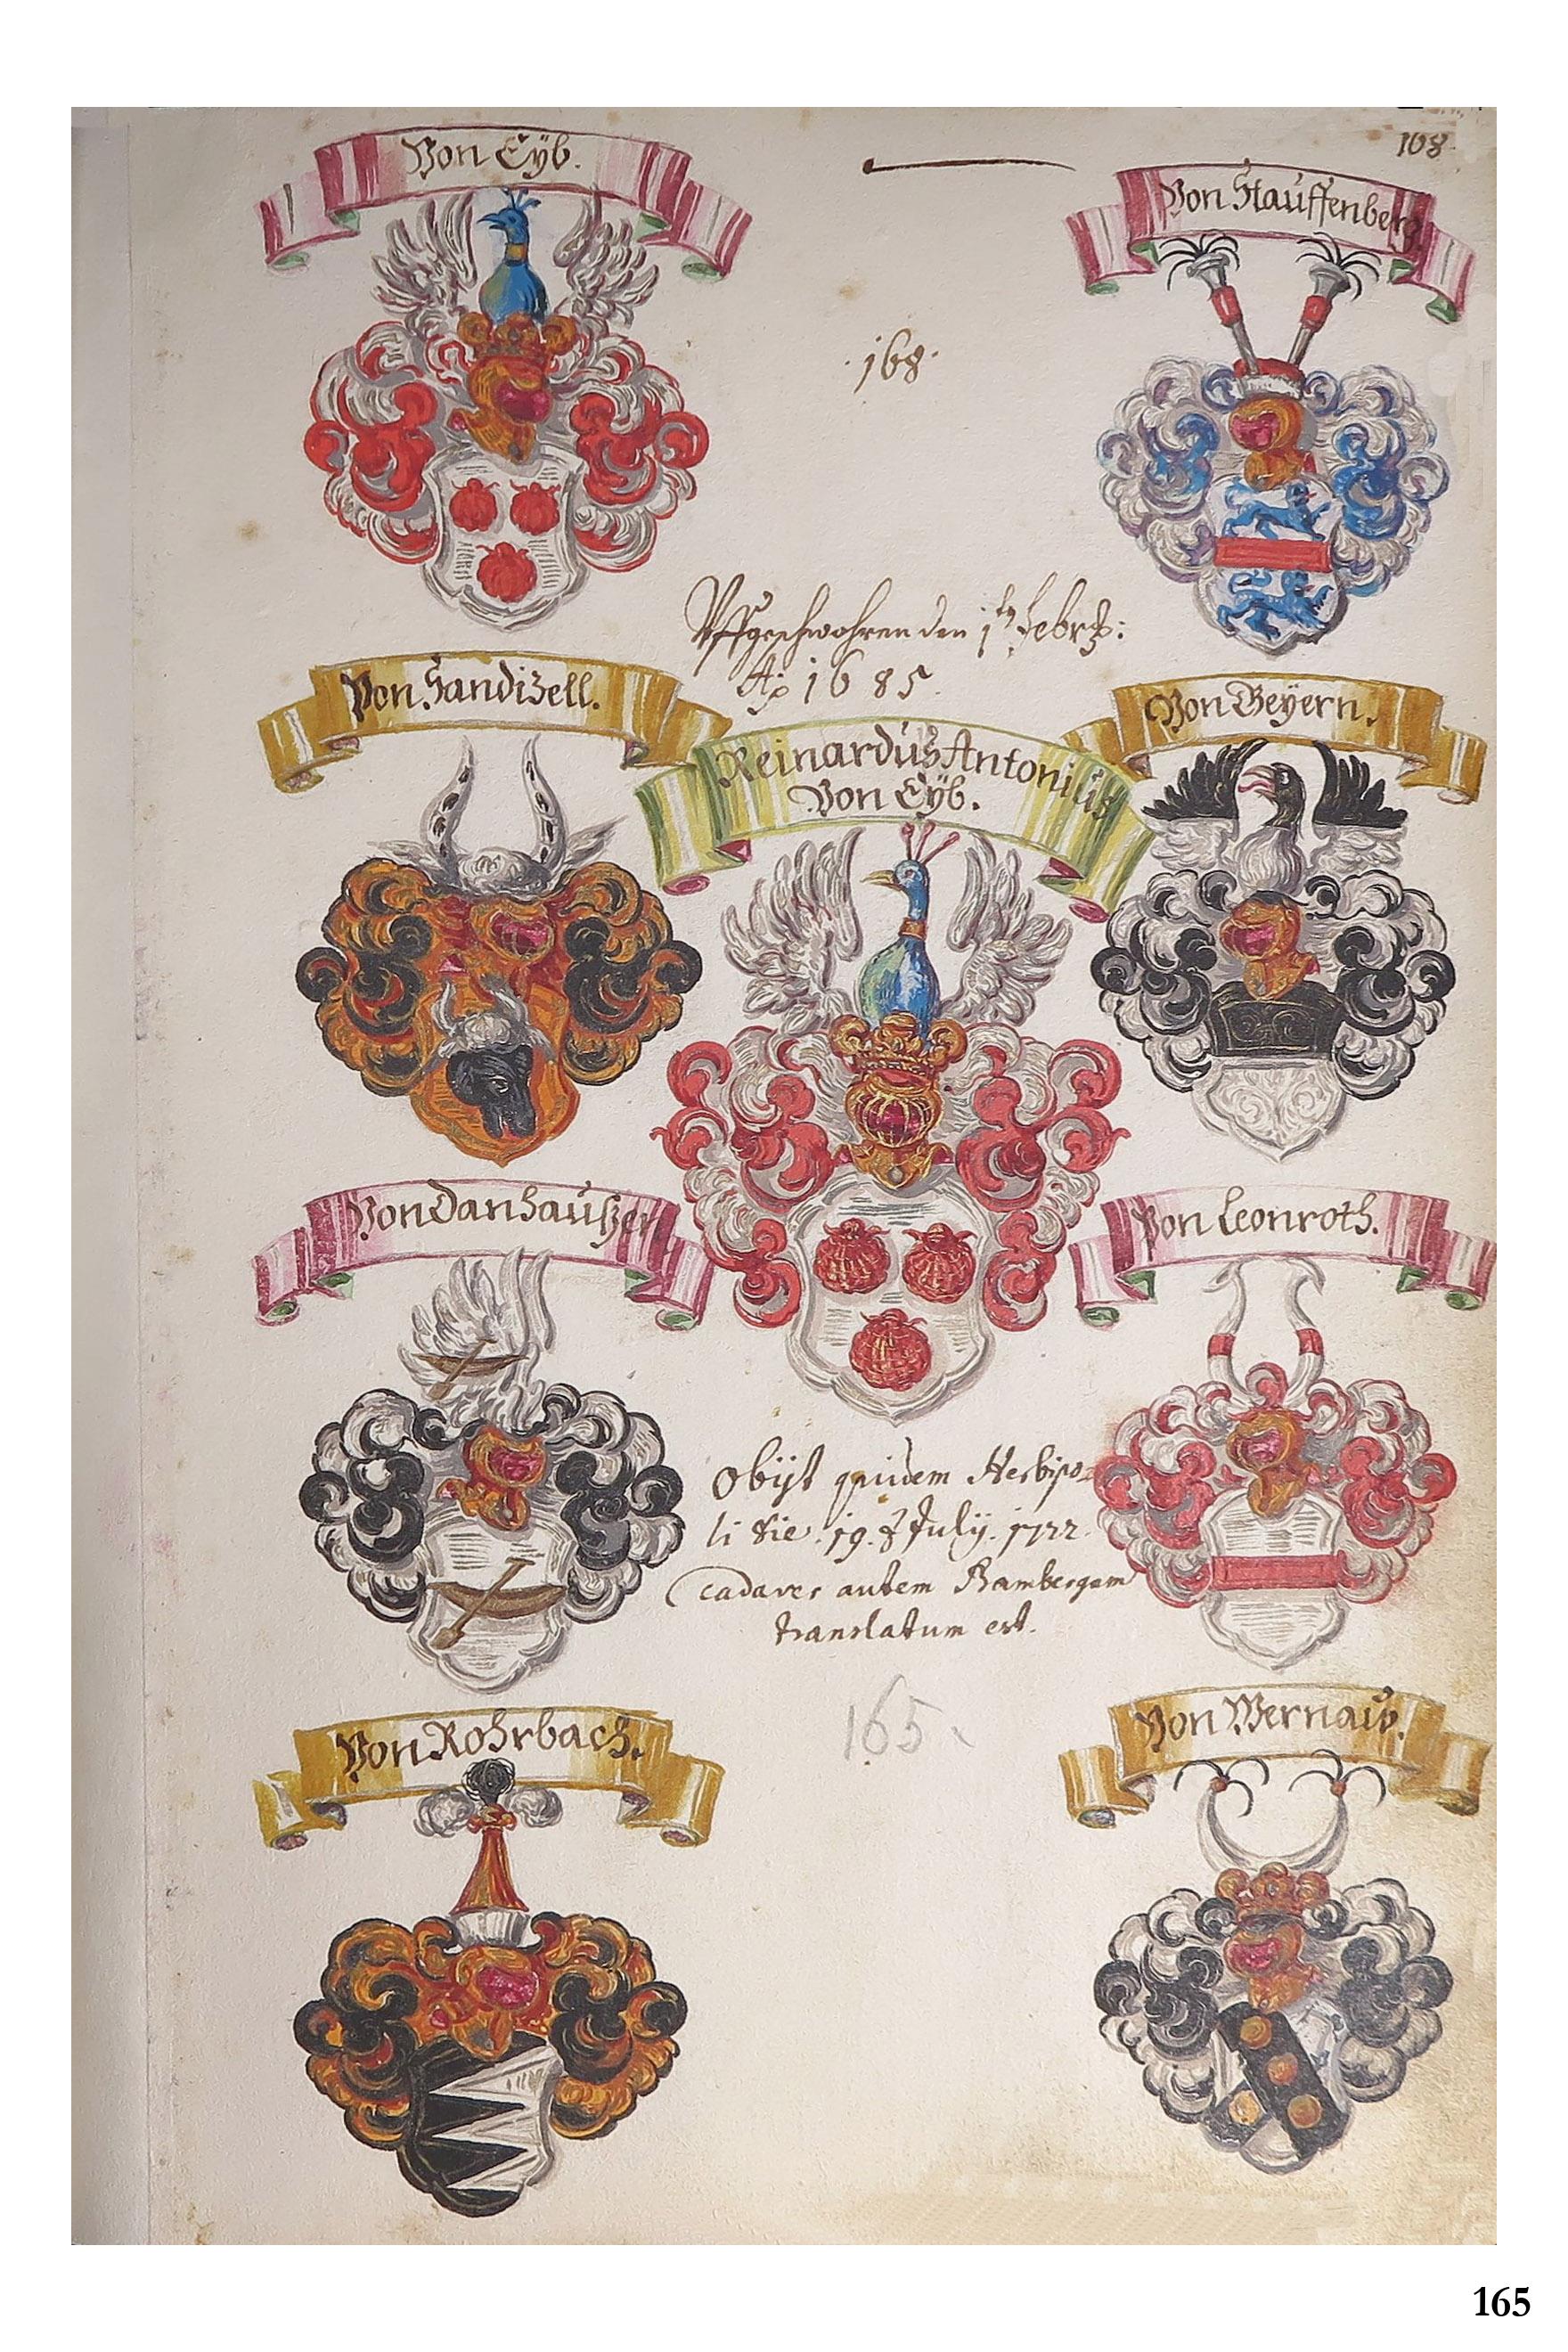 Von Eÿb.
168.
Von Stauffenberg.
.168.
Von Sandizell.
Auffgeschwohren den Febr:
Ao 1685.
Von Geÿern.
Reinardus Antonius
Von Eÿb.
Von Danhaußen.
Von Leonroth.
Obijt quidem Herbipo-
li die. 19. July. 1722.
cadaver autem Bambergam
translatum est.
165.
Von Rohrbach.
Von Wernau.
165